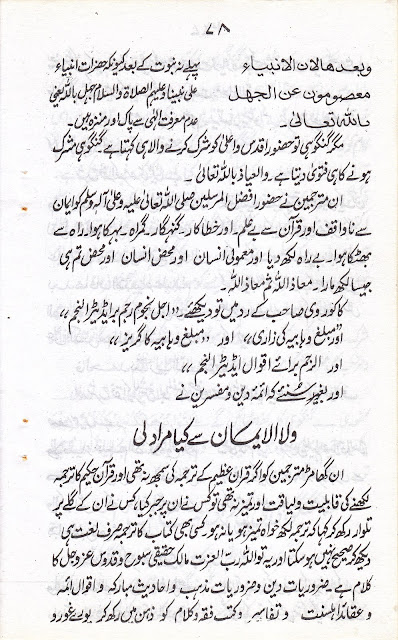 ۷۸
وبعدھا لان الانبیاء پہلے نہ نبوت کے بعد کیونکہ حضرات انبیاء
معصومون عن الجهل علی نبینا وعلیہم الصلاۃ والسلام جہل باللہ یعنی
باللہ تعالیٰ۔ عدم معرفت الٰہی سے پاک اور منزہ ہیں۔
مگر گنگوہی تو حضور اقدس واعلیٰ کو شرک کرنے والا ہی کہتا ہے گنگوہی مشرک
ہونے کا ہی فتویٰ دیتا ہے۔ والعیاذ باللہ تعالیٰ۔
ان مترجمین نے حضور افضل المرسلین صلی اللہ تعالیٰ علیہ وعلیٰ آلہ وسلم کو ایمان
سے ناواقف اور قرآن سے بے علم۔ اور خطا کار۔ گنہگار۔ گمراہ۔ بہکا ہوا۔ راہ سے
بھٹکا ہوا۔ بے راہ لکھ دیا اور معمولی انسان اور محض انسان اور محض تم ہی
جیسا لکھ مارا۔ معاذ اللہ ثم معاذ اللہ۔
کاکوروی صاحب کے رد میں تو دیکھئے۔ ”اجل نجوم رجم بر ایڈیٹر النجم“
اور ”مبلغ وہابیہ کی زاری“ اور ”مبلغ وہابیہ کا گریز“
اور الرجم برائے اقوال ایڈیٹر النجم“
اور بغور سنئے کہ ائمۂ دین ومفسرین نے
ولا الایمان سے کیا مراد لی
ان گھامڑ مترجمین کو اگر قرآن عظیم کے ترجمہ کی سمجھ نہ تھی اور قرآن حکیم کا ترجمہ
لکھنے کی قابلیت ولیاقت اور تمیز نہ تھی تو کس نے ان پر جبر کیا، کس نے ان کے گلے پر
تلوار رکھ کر کہا کہ ترجمہ لکھ خواہ تمیز ہو یا نہ ہو۔ کسی بھی کتاب کا ترجمہ صرف لغت ہی
دیکھ کر صحیح نہیں ہو سکتا اور یہ تو اللہ رب العزت مالک حقیقی سبوح وقدوس عزوجل کا
کلام ہے۔ ضروریات دین وضروریات مذہب واحادیث مبارکہ واقوال ائمہ
وعقائد اہلسنت وتفاسیر وکتب فقہ وکلام کو ذہن میں رکھ کر پورے غور و